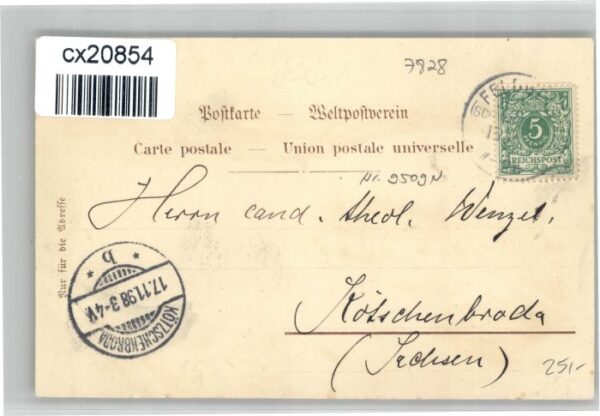 cx20854
7928
Postkarte — Weltpostverein
Carte postale — Union postale universelle
5
REICHSPOST
Nr. 9509N
Nur für die Adresse
Herrn cand. theol. Wenzel.
b
17.11.98 3-4V.
KÖTZSCHENBRODA
Kötschenbroda
(Sachsen)
251-